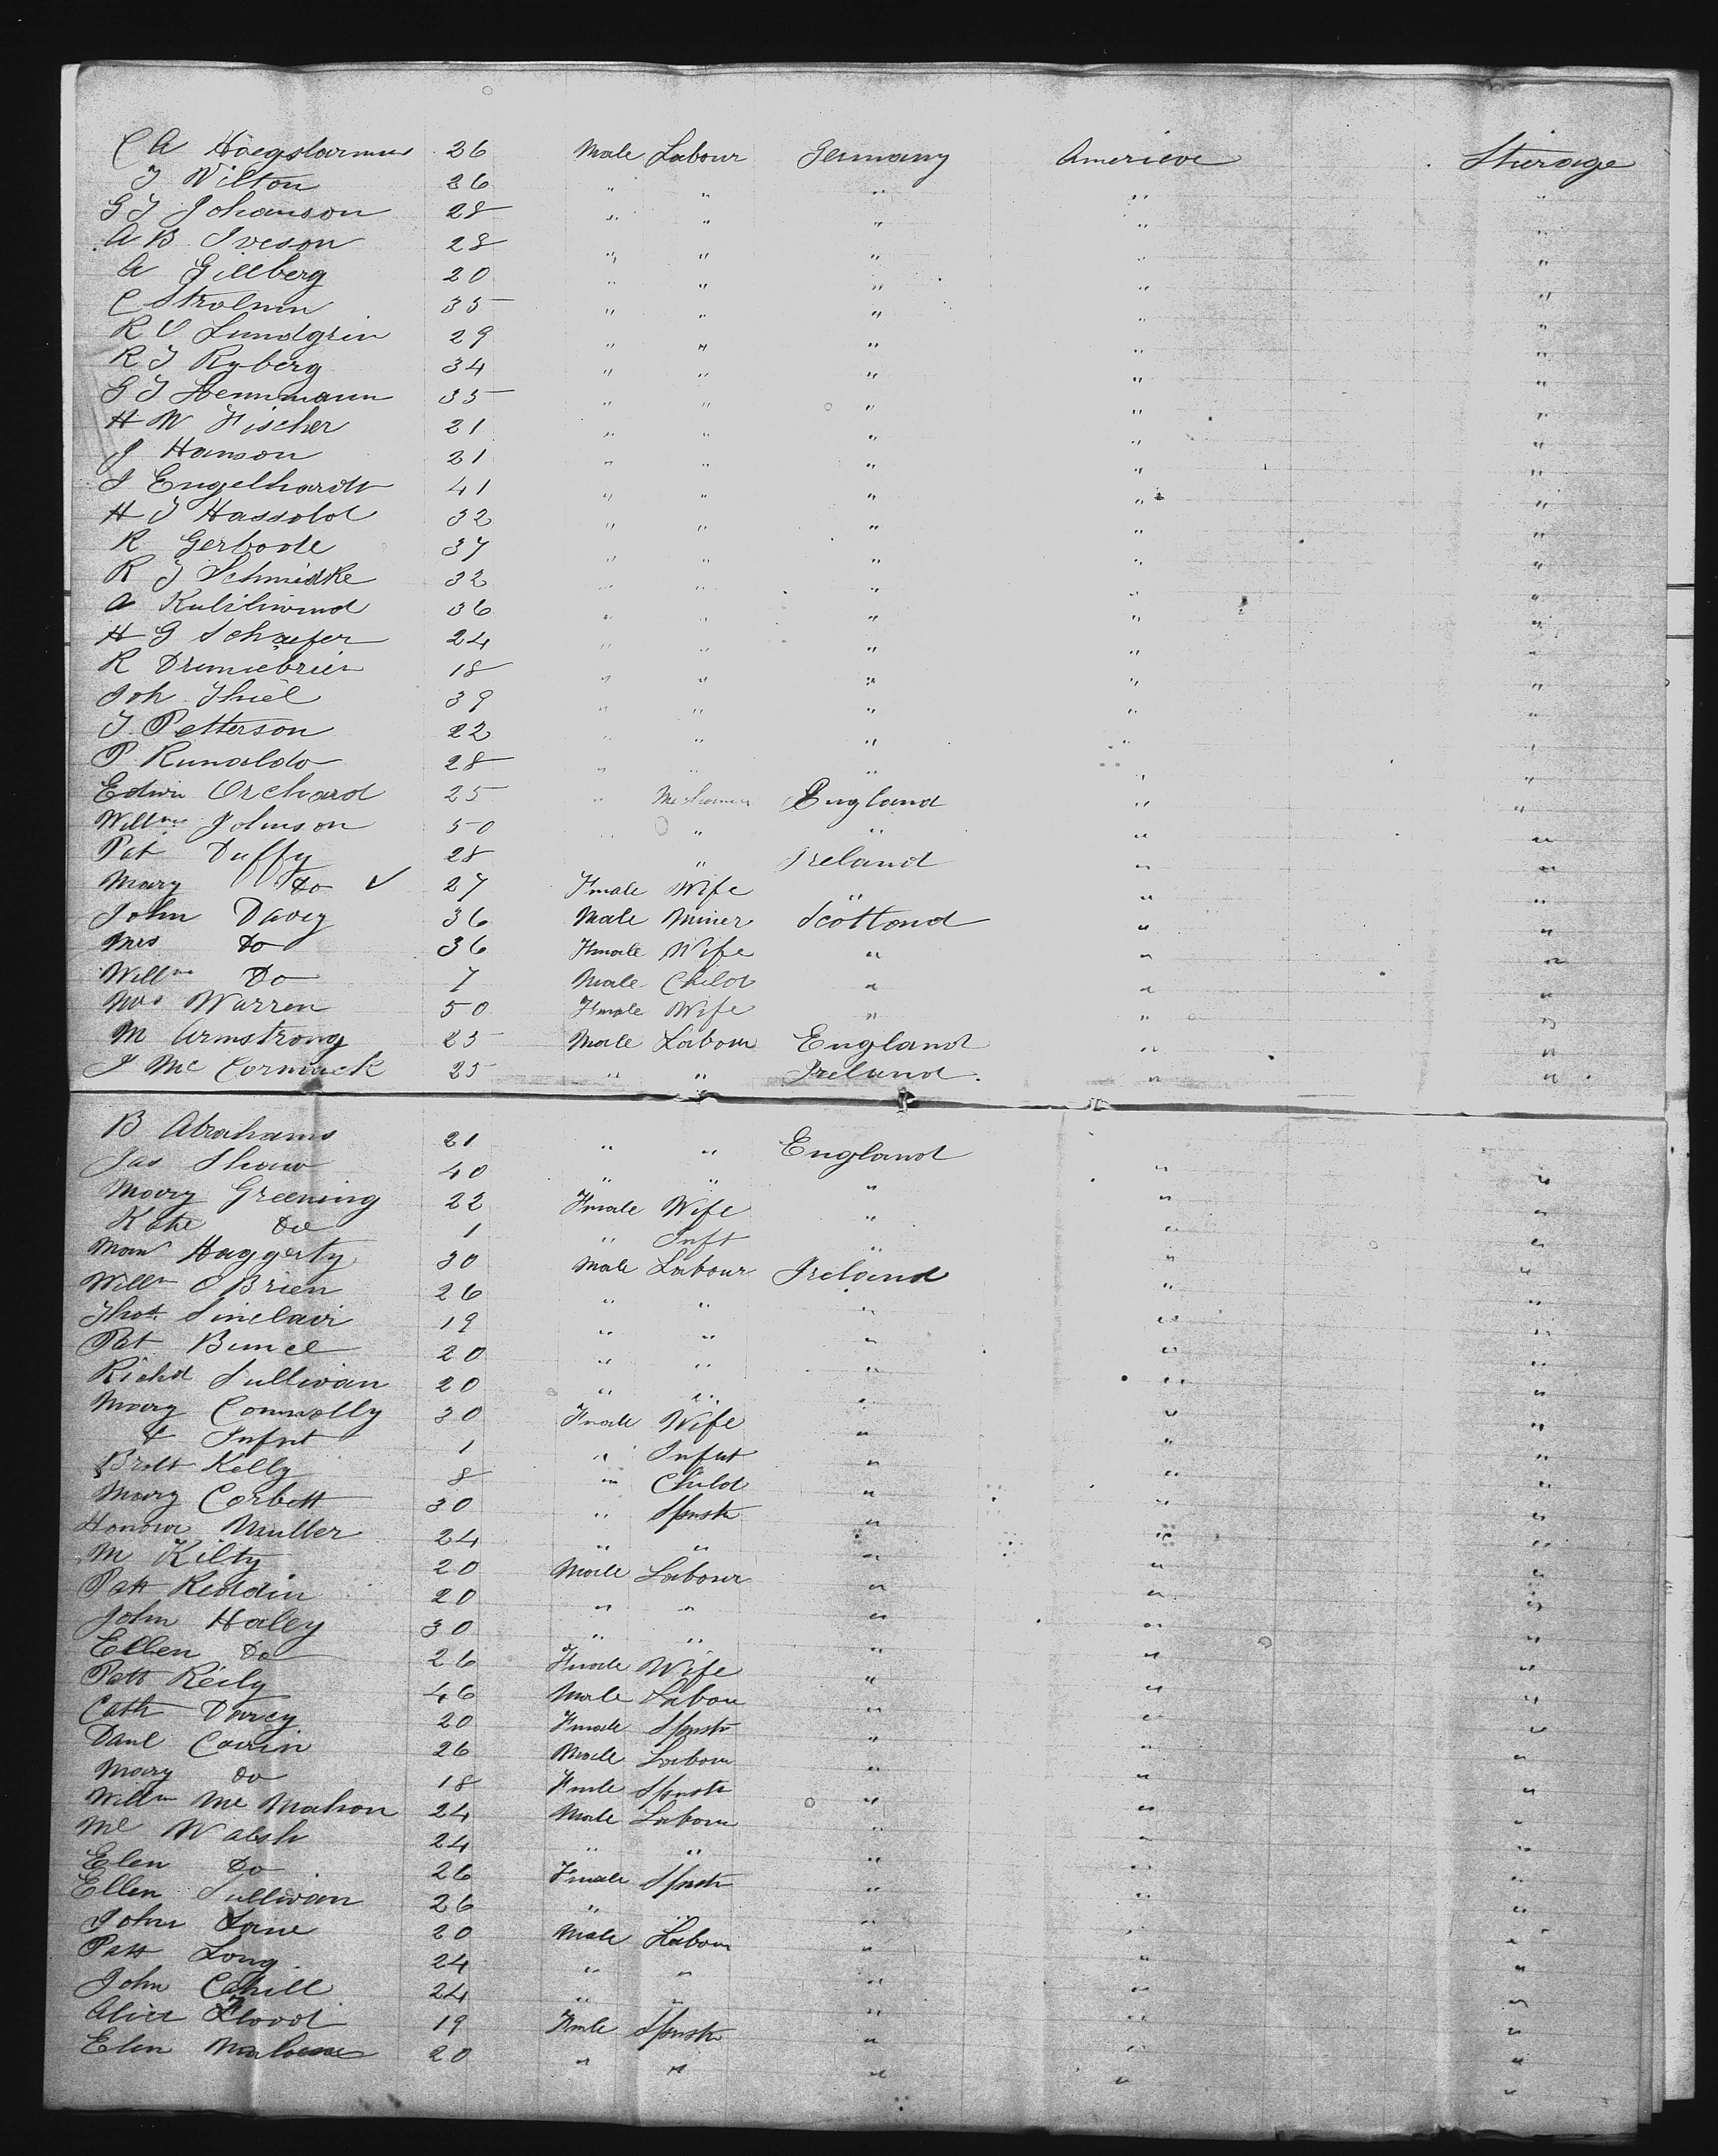 C A 26 Male Labour Germany America Sturage
J Wilton 26 " " " " "
G J Johanson 28 " " " " "
A B Iveson 28 " " " " "
A Gillberg 20 " " " " "
C 35 " " " " "
R V Lundgrin 29 " " " " "
R J Ryberg 34 " " " " "
G J 35 " " " " "
H W Fischer 21 " " " " "
J Hanson 21 " " " " "
J Engelhardt 41 " " " " "
H J Hassold 32 " " " " "
R Gerbode 37 " " " " "
R J Schmidke 32 " " " " "
A 36 " " " " "
H G Schaefer 24 " " " " "
R 18 " " " " "
Joh Thiel 39 " " " " "
J. Petterson 22 " " " " "
P Runaldo 28 " " " " "
Edwin Orchard 25 " England " "
Willm Johnson 50 " " " " "
Pat Duffy 28 " " Ireland " "
Mary Do ✓ 27 Fmale Wife " " "
John Davey 36 Male Miner Scotland " "
Mrs Do 36 Fmale Wife " " "
Willm Do 7 Male Child " " "
Mrs Warren 50 Fmale Wife " " "
M Armstrong 25 Male Labour England " "
J Mc Cormack 25 " " Ireland. " "
B Abrahams 21 " " England " "
Jas Shaw 40 " " " " "
Mary Greening 22 Fmale Wife " " "
Kate Do 1 " Inft " " "
Haggerty 30 Male Labour Ireland " "
Willm O Brien 26 " " " " "
Thos Sinclair 19 " " " " "
Pat Bunce 20 " " " " "
Richd Sullivan 20 " " " " "
Mary Connolly 30 Fmale Wife " " "
& Infnt 1 " Infnt " " "
Bridt Kelly 8 " Child " " "
Mary Corbett 30 " Spnstr " " "
Honora Muller 24 " " " " "
M Kilty 20 Male Labour " " "
Patt Reddin 20 " " " " "
John Haley 30 " " " " "
Ellen Do 26 Fmale Wife " " "
Patt Reily 46 Male Labou " " "
Cath Darcy 20 Fmale Spnstr " " "
Danl Cavin 26 Male Labour " " "
Mary Do 18 Fmle Spnstr " " "
Willm Mc Mahon 24 Male Labour " " "
Ml Walsh 24 " " " " "
Elen Do 26 Fmale Spnstr " " "
Ellen Sullivan 26 " " " " "
John Lane 20 Male Labour " " "
Patt Long 24 " " " " "
John Cahill 24 " " " " "
Alice Flood 19 Fmle Spnstr " " "
Elen 20 " " " " "